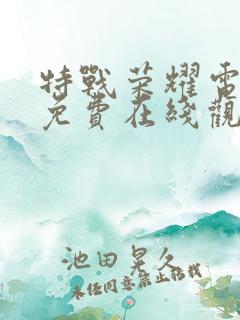 特戰荣耀電
免費在綫觀
池田晃久
未经同意禁止转载